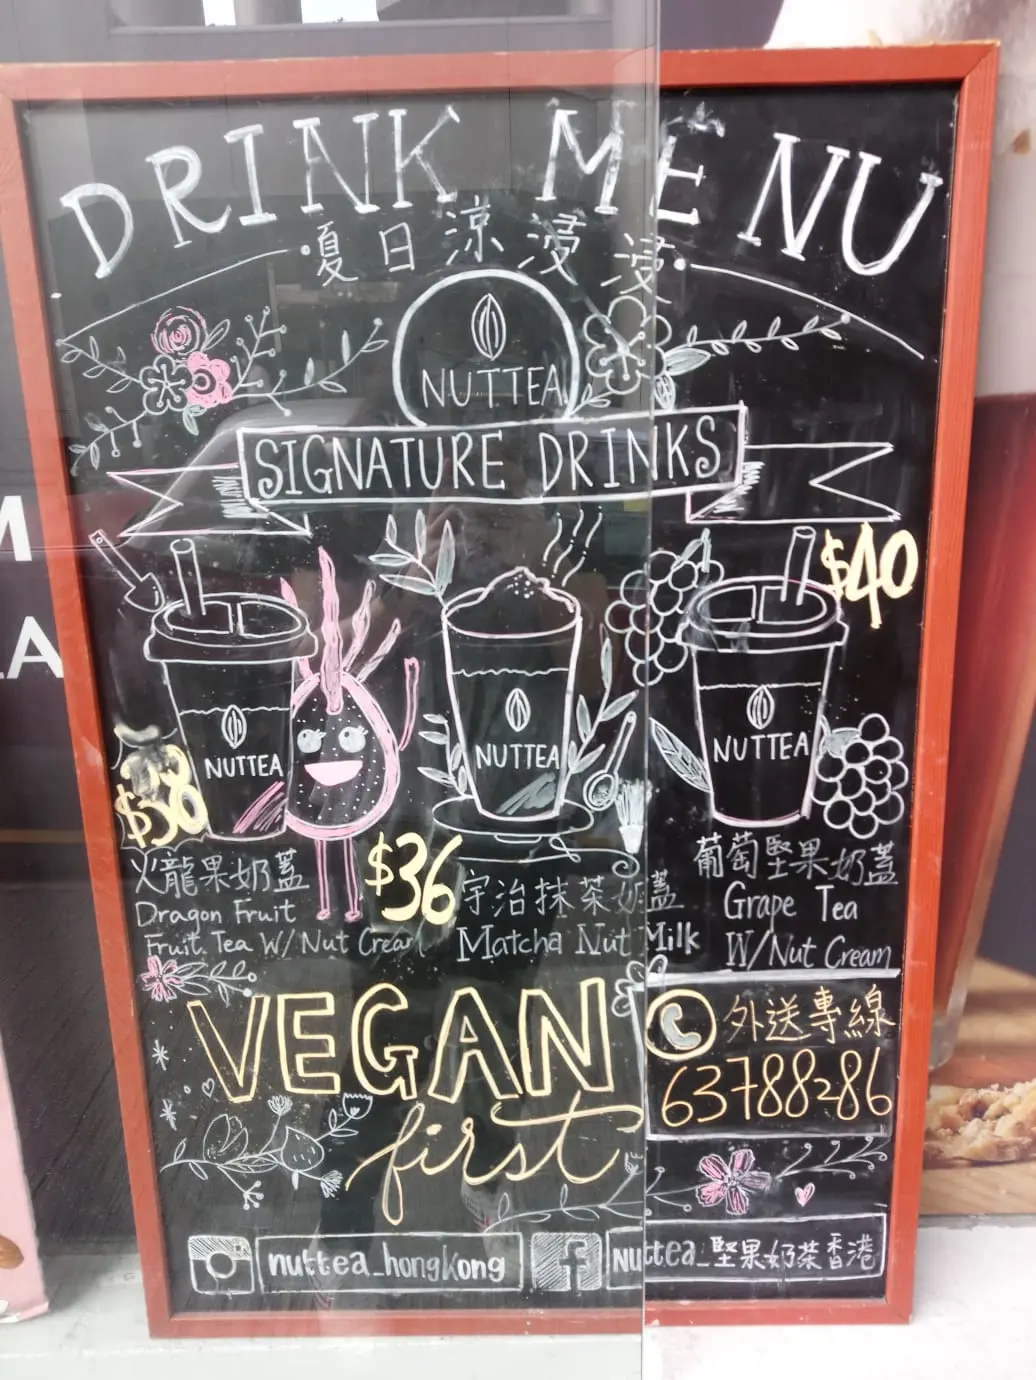 DRINK MENU
夏日涼浸浸
NUTTEA
SIGNATURE DRINKS
$40
NUTTEA
NUTTEA
NUTTEA
$38
火龍果奶蓋
Dragon Fruit
Fruit Tea W/ Nut Cream
$36
宇治抹茶奶蓋
Matcha Nut Milk
葡萄堅果奶蓋
Grape Tea
W/Nut Cream
VEGAN
first
外送專線
63788286
nuttea_hongkong
f
Nuttea_堅果奶茶香港